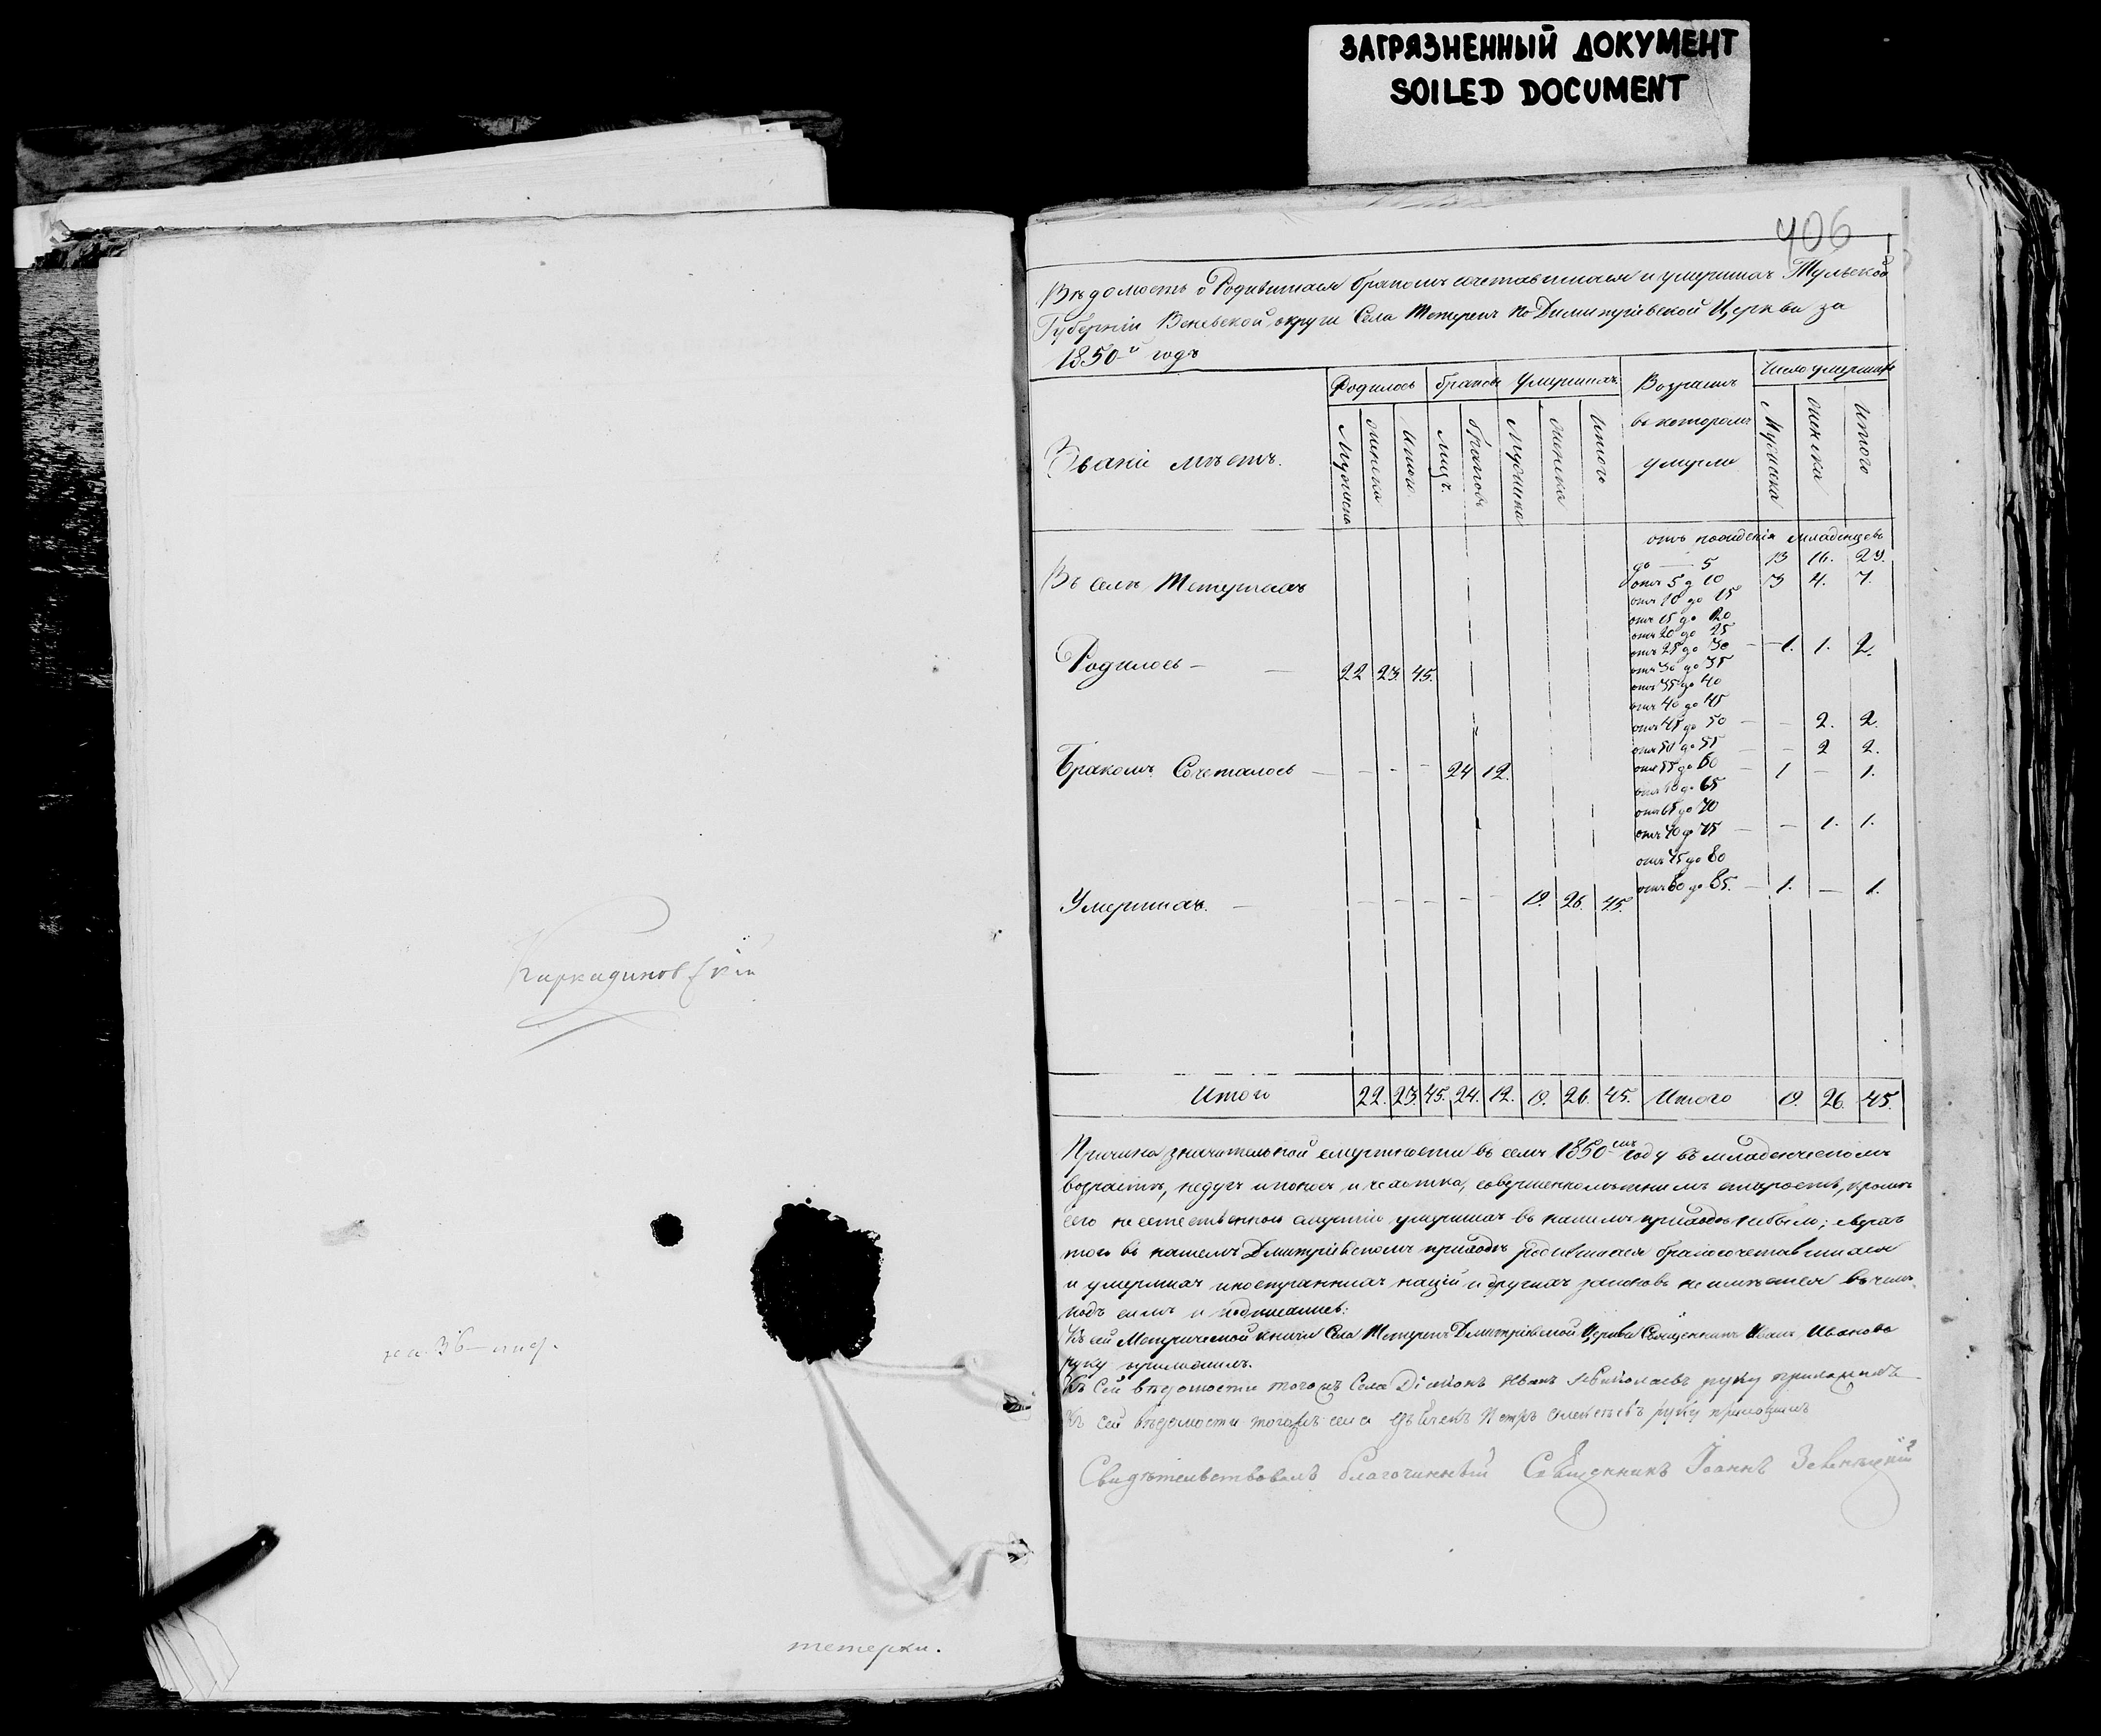 ЗАГРЯЗНЕННЫЙ ДОКУМЕНТ
SOILED DOCUMENT
Каркадиновскій
36
тетерки.
406
Вѣдомость о Родившихся бракомъ сочетавшихся и умершихъ Тульской
Губерніи Веневской округи Села Тетеренъ по Димитріевской Церкви за
1850й годъ
Званіе мѣстъ. Родилось браковъ Умершихъ Возрастъ въ которомъ умерли Число умершихъ
Мужеска женска Итого Лицъ. браковъ Мужеска женска Итого Мужеска женска Итого
отъ рожденія младенцевъ
до — 5 13 16. 29.
Въ селѣ Тетеркахъ отъ 5 д 10 3 4. 7.
отъ 10 до 15
отъ 15 до 20
отъ 20 до 25
отъ 25 до 30 — 1. 1. 2.
Родилось — — 22 23. 45. отъ 30 до 35
отъ 35 до 40
отъ 40 до 45
отъ 45 до 50 — — 2. 2.
отъ 50 до 55 — — 2 2.
Бракомъ Сочеталось — — - - 24 12. отъ 55 до 60 — 1 — 1.
отъ 60 до 65
отъ 65 до 70
отъ 70 до 75 — — 1. 1.
отъ 75 до 80
отъ 80 до 85. — 1. — 1.
Умершихъ. — — - — - — 19. 26. 45.
Итого 22. 23. 45. 24. 12. 19. 26. 45. Итого 19. 26. 45.
Причина значительной смертности въ семъ 1850мъ году въ младенческомъ
возрастѣ, недугъ поносъ и чахотка, совершеннолѣтнимъ старость, кромѣ
сего не естественною смертію умершихъ въ нашемъ приходѣ небыло; сверхъ
того въ нашемъ Дмитріевскомъ приходѣ родившихся бракосочетавшихся
и умершихъ иностранныхъ націй и другихъ законовъ не имѣется въ чемъ
подъ симъ и подпишемся:
Къ сей Метрической книги Села Тетеренъ Дмитріевской Церкви Священникъ Иванъ Ивановъ
руку приложилъ.
Къ Сей вѣдомости тогожъ Села Діаконъ Иванъ Николаевъ руку приложилъ
Къ сей вѣдомости тогожъ села дьячекъ Петръ Алексѣевъ руку приложилъ
Свидѣтельствовалъ благочинный Священникъ Іоаннъ